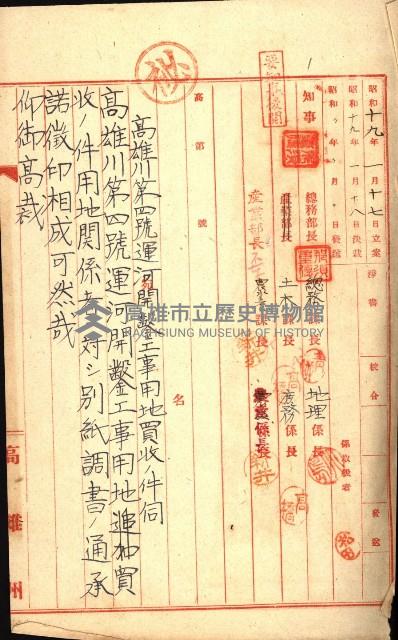 昭和十九年一月十七日立案
昭和十九年一月十八日決裁
昭和 年 月 日發送
淨書
校合
發送
知事
總務部長
總務課長
地理係長
係
產業部長
土木課長
庶務係長
產業部長不在
農
課長
係長
高 第 號
名
高雄川第四號運河開鑿工事用地買收ノ件伺
高雄川第四號運河開鑿工事用地追加買
收ノ件用地關係者ニ對シ別紙調書ノ通承
諾徵印相成可然哉
仰御高裁
高雄州
秘
高雄市立歷史博物館
KAOHSIUNG MUSEUM OF HISTORY